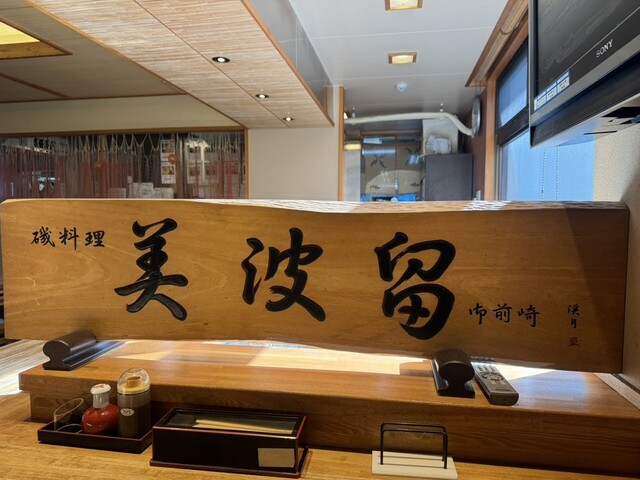 磯料理
美波留
御前崎
SONY